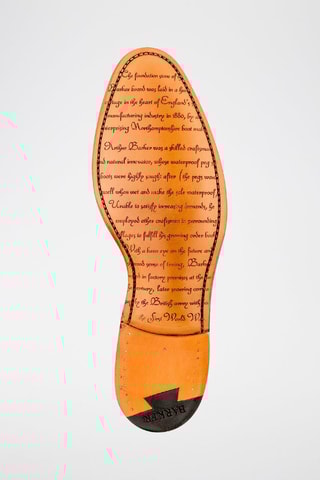 The foundation stone of the
Barker brand was laid in a
in the heart of England's
manufacturing industry in 1880, by
Northamptonshire boot
Arthur Barker was a skilled craftsman
and innovator, whose waterproof peg
boots were highly sought after (the pegs
swell when wet and make the sole waterproof
Unable to satisfy increasing demands, he
employed other craftsmen in surrounding
villages to fulfill his growing order book
With a keen eye on the future and
sense of timing, Barker
factory premises at the
century, later securing
by the British army with
the First World W
BARKER